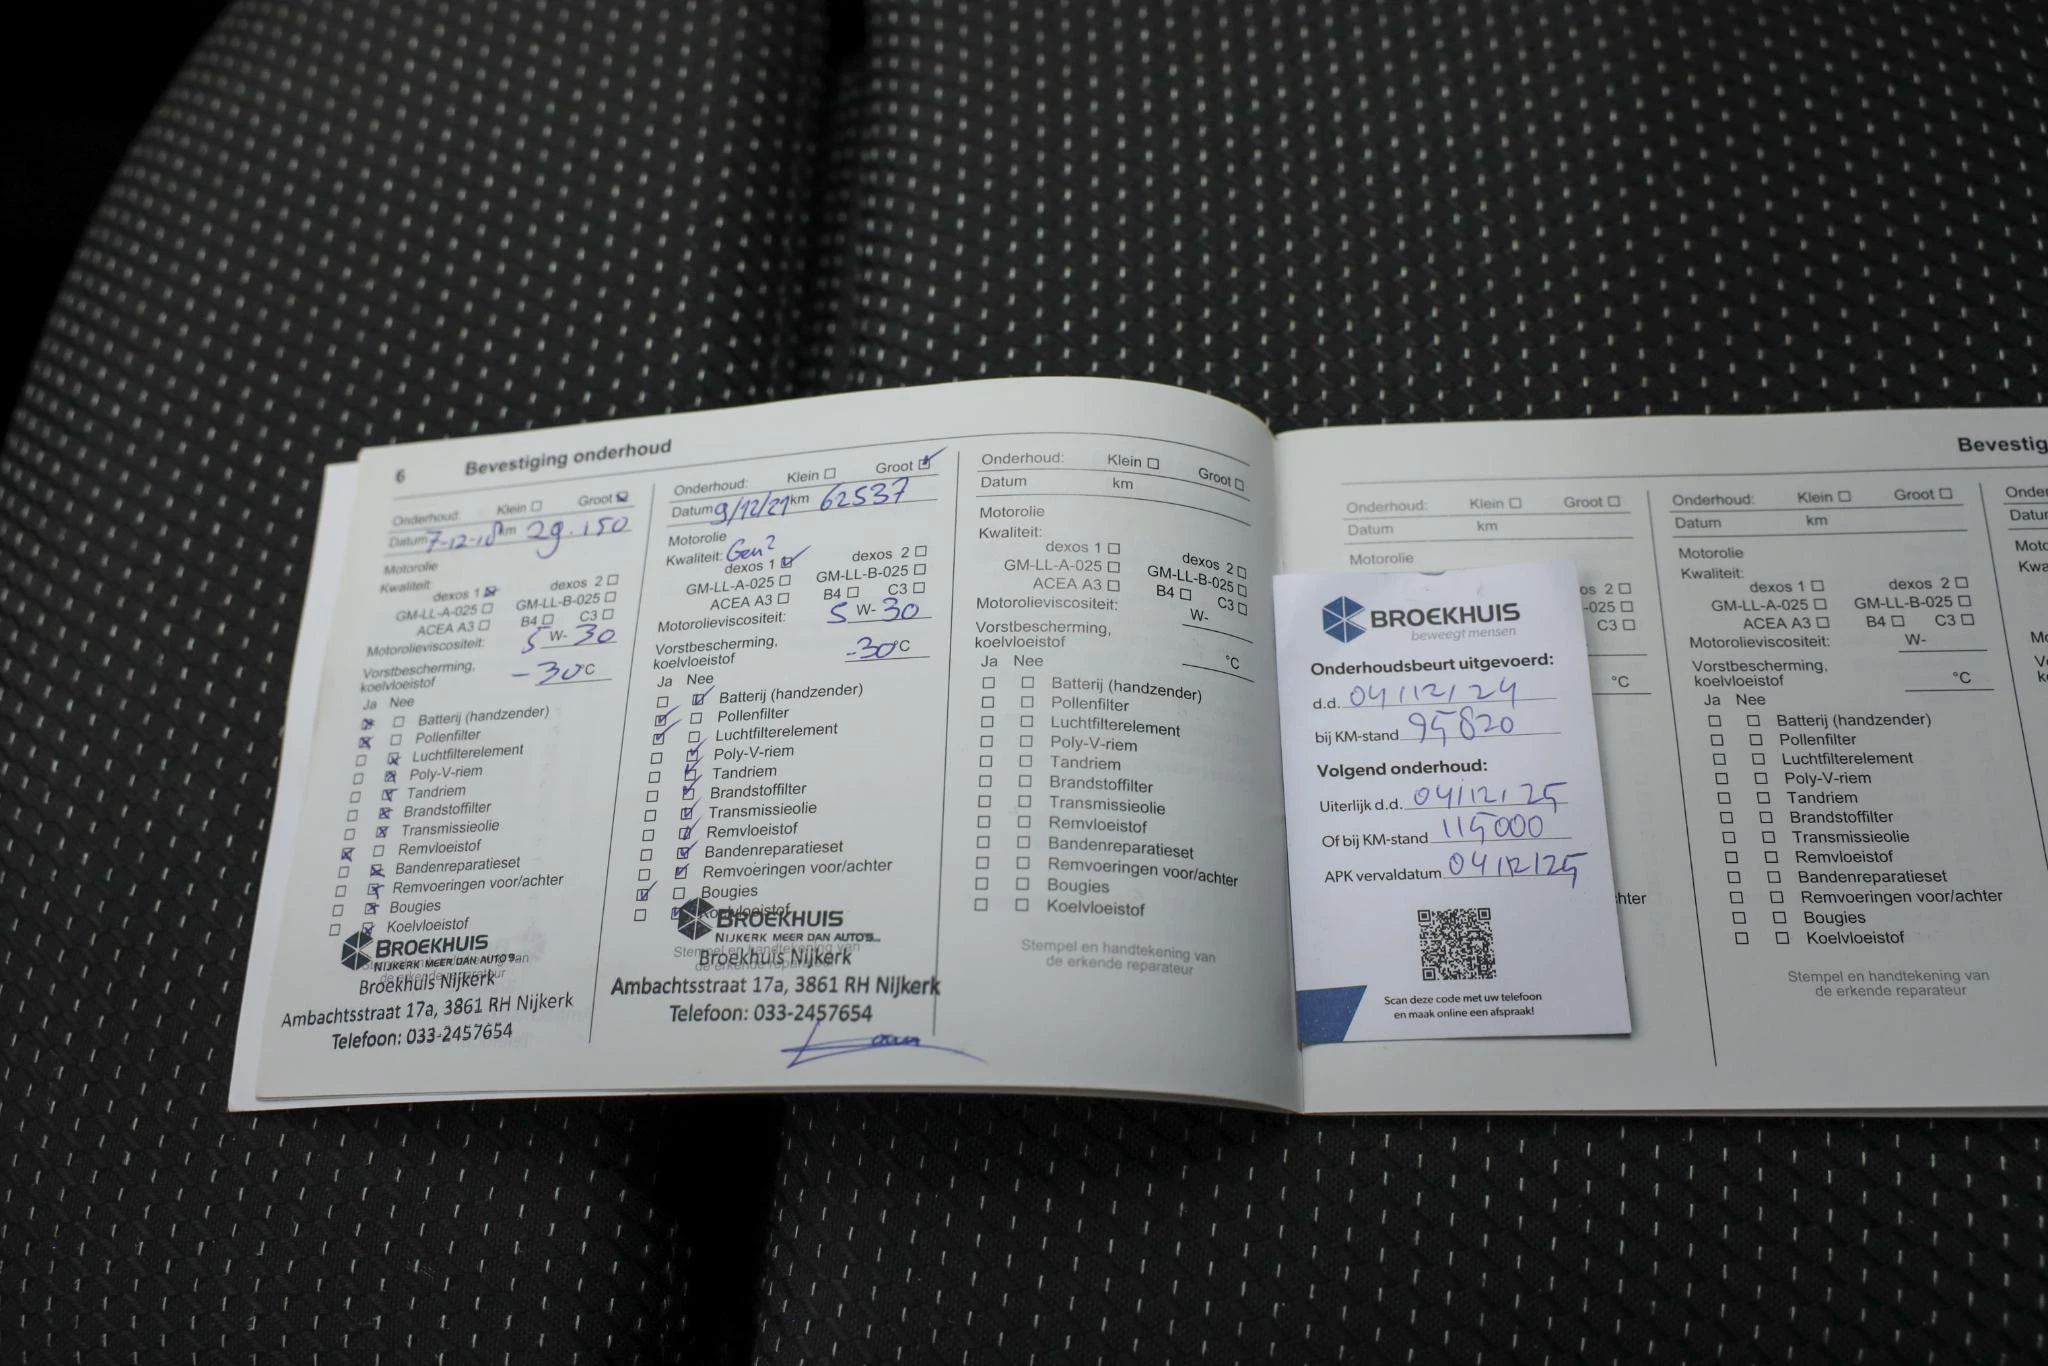 6 Bevestiging onderhoud
Onderhoud: Klein ☐ Groot ☒
Datum 7-12-18 km 29.150
Motorolie
Kwaliteit:
dexos 1 ☒ dexos 2 ☐
GM-LL-A-025 ☐ GM-LL-B-025 ☐
ACEA A3 ☐ B4 ☐ C3 ☐
Motorolieviscositeit: 5 W- 30
Vorstbescherming,
koelvloeistof -30°C
Ja Nee
☒ ☐ Batterij (handzender)
☒ ☐ Pollenfilter
☐ ☒ Luchtfilterelement
☐ ☒ Poly-V-riem
☐ ☒ Tandriem
☐ ☒ Brandstoffilter
☐ ☒ Transmissieolie
☒ ☐ Remvloeistof
☐ ☒ Bandenreparatieset
☐ ☒ Remvoeringen voor/achter
☐ ☒ Bougies
☐ ☒ Koelvloeistof
BROEKHUIS
NIJKERK MEER DAN AUTO'S...
Broekhuis Nijkerk
Ambachtsstraat 17a, 3861 RH Nijkerk
Telefoon: 033-2457654
Onderhoud: Klein ☐ Groot ☑
Datum 9/12/21 km 62537
Motorolie
Kwaliteit: Gen 2
dexos 1 ☑ dexos 2 ☐
GM-LL-A-025 ☐ GM-LL-B-025 ☐
ACEA A3 ☐ B4 ☐ C3 ☐
Motorolieviscositeit: 5 W- 30
Vorstbescherming,
koelvloeistof -30°C
Ja Nee
☐ ☑ Batterij (handzender)
☑ ☐ Pollenfilter
☑ ☐ Luchtfilterelement
☐ ☑ Poly-V-riem
☐ ☑ Tandriem
☐ ☑ Brandstoffilter
☐ ☑ Transmissieolie
☐ ☑ Remvloeistof
☐ ☑ Bandenreparatieset
☐ ☑ Remvoeringen voor/achter
☑ ☐ Bougies
☐ ☑ Koelvloeistof
BROEKHUIS
NIJKERK MEER DAN AUTO'S...
Stempel en handtekening van
de erkende reparateur
Broekhuis Nijkerk
Ambachtsstraat 17a, 3861 RH Nijkerk
Telefoon: 033-2457654
Onderhoud: Klein ☐ Groot ☐
Datum km
Motorolie
Kwaliteit:
dexos 1 ☐ dexos 2 ☐
GM-LL-A-025 ☐ GM-LL-B-025 ☐
ACEA A3 ☐ B4 ☐ C3 ☐
Motorolieviscositeit: W-
Vorstbescherming,
koelvloeistof °C
Ja Nee
☐ ☐ Batterij (handzender)
☐ ☐ Pollenfilter
☐ ☐ Luchtfilterelement
☐ ☐ Poly-V-riem
☐ ☐ Tandriem
☐ ☐ Brandstoffilter
☐ ☐ Transmissieolie
☐ ☐ Remvloeistof
☐ ☐ Bandenreparatieset
☐ ☐ Remvoeringen voor/achter
☐ ☐ Bougies
☐ ☐ Koelvloeistof
Stempel en handtekening van
de erkende reparateur
Bevestig
Onderhoud: Klein ☐ Groot ☐
Datum km
Motorolie
os 2 ☐
-025 ☐
C3 ☐
°C
hter
BROEKHUIS
beweegt mensen
Onderhoudsbeurt uitgevoerd:
d.d. 04/12/24
bij KM-stand 95820
Volgend onderhoud:
Uiterlijk d.d. 04/12/25
Of bij KM-stand 115000
APK vervaldatum 04/12/25
Scan deze code met uw telefoon
en maak online een afspraak!
Onderhoud: Klein ☐ Groot ☐
Datum km
Motorolie
Kwaliteit:
dexos 1 ☐ dexos 2 ☐
GM-LL-A-025 ☐ GM-LL-B-025 ☐
ACEA A3 ☐ B4 ☐ C3 ☐
Motorolieviscositeit: W-
Vorstbescherming,
koelvloeistof °C
Ja Nee
☐ ☐ Batterij (handzender)
☐ ☐ Pollenfilter
☐ ☐ Luchtfilterelement
☐ ☐ Poly-V-riem
☐ ☐ Tandriem
☐ ☐ Brandstoffilter
☐ ☐ Transmissieolie
☐ ☐ Remvloeistof
☐ ☐ Bandenreparatieset
☐ ☐ Remvoeringen voor/achter
☐ ☐ Bougies
☐ ☐ Koelvloeistof
Stempel en handtekening van
de erkende reparateur
Onde
Datu
Moto
Kwa